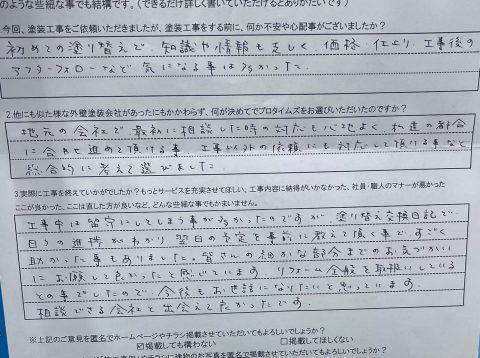 のような些細な事でも結構です。(できるだけ詳しく書いていただけるとありがたいです)
1.今回、塗装工事をご依頼いただきましたが、塗装工事をする前に、何か不安や心配事がございましたか?
初めての塗り替えで、知識や情報も乏しく、価格、仕上り、工事後の
アフターフォローなど気になる事は多かった。
2.他にも似た様な外壁塗装会社があったにもかかわらず、何が決めてでプロタイムズをお選びいただいたのですか?
地元の会社で最初に相談した時の対応も心地よく、私達の都合
に合わせ進めて頂ける事、工事以外の依頼にも対応して頂ける事など
総合的に考えて選びました。
3.実際に工事を終えていかがでしたか?もっとサービスを充実させてほしい、工事内容に納得がいかなかった、社員・職人のマナーが悪かった
ここが良かった、ここは直した方が良いなど、どんな些細な事でもかまいません。
工事中は留守にしてしまう事が多かったのですが、塗り替え交換日記で、
日々の進捗がわかり、翌日の予定を事前に教えて頂く事で、すごく
助かった事もありました。皆さんの細かな部分までのお気づかい
にお願して良かったと感じています。リフォーム全般を取扱いしている
との事でしたので、今後もお世話になりたいと思っています。
相談できる会社と出会えて良かったです。
※上記のご意見を匿名でホームページやチラシ掲載させていただいてもよろしいでしょうか?
☑掲載しても構わない □掲載してほしくない
チラシに建物のお写真を匿名で掲載させていただいてもよろしいでしょうか?